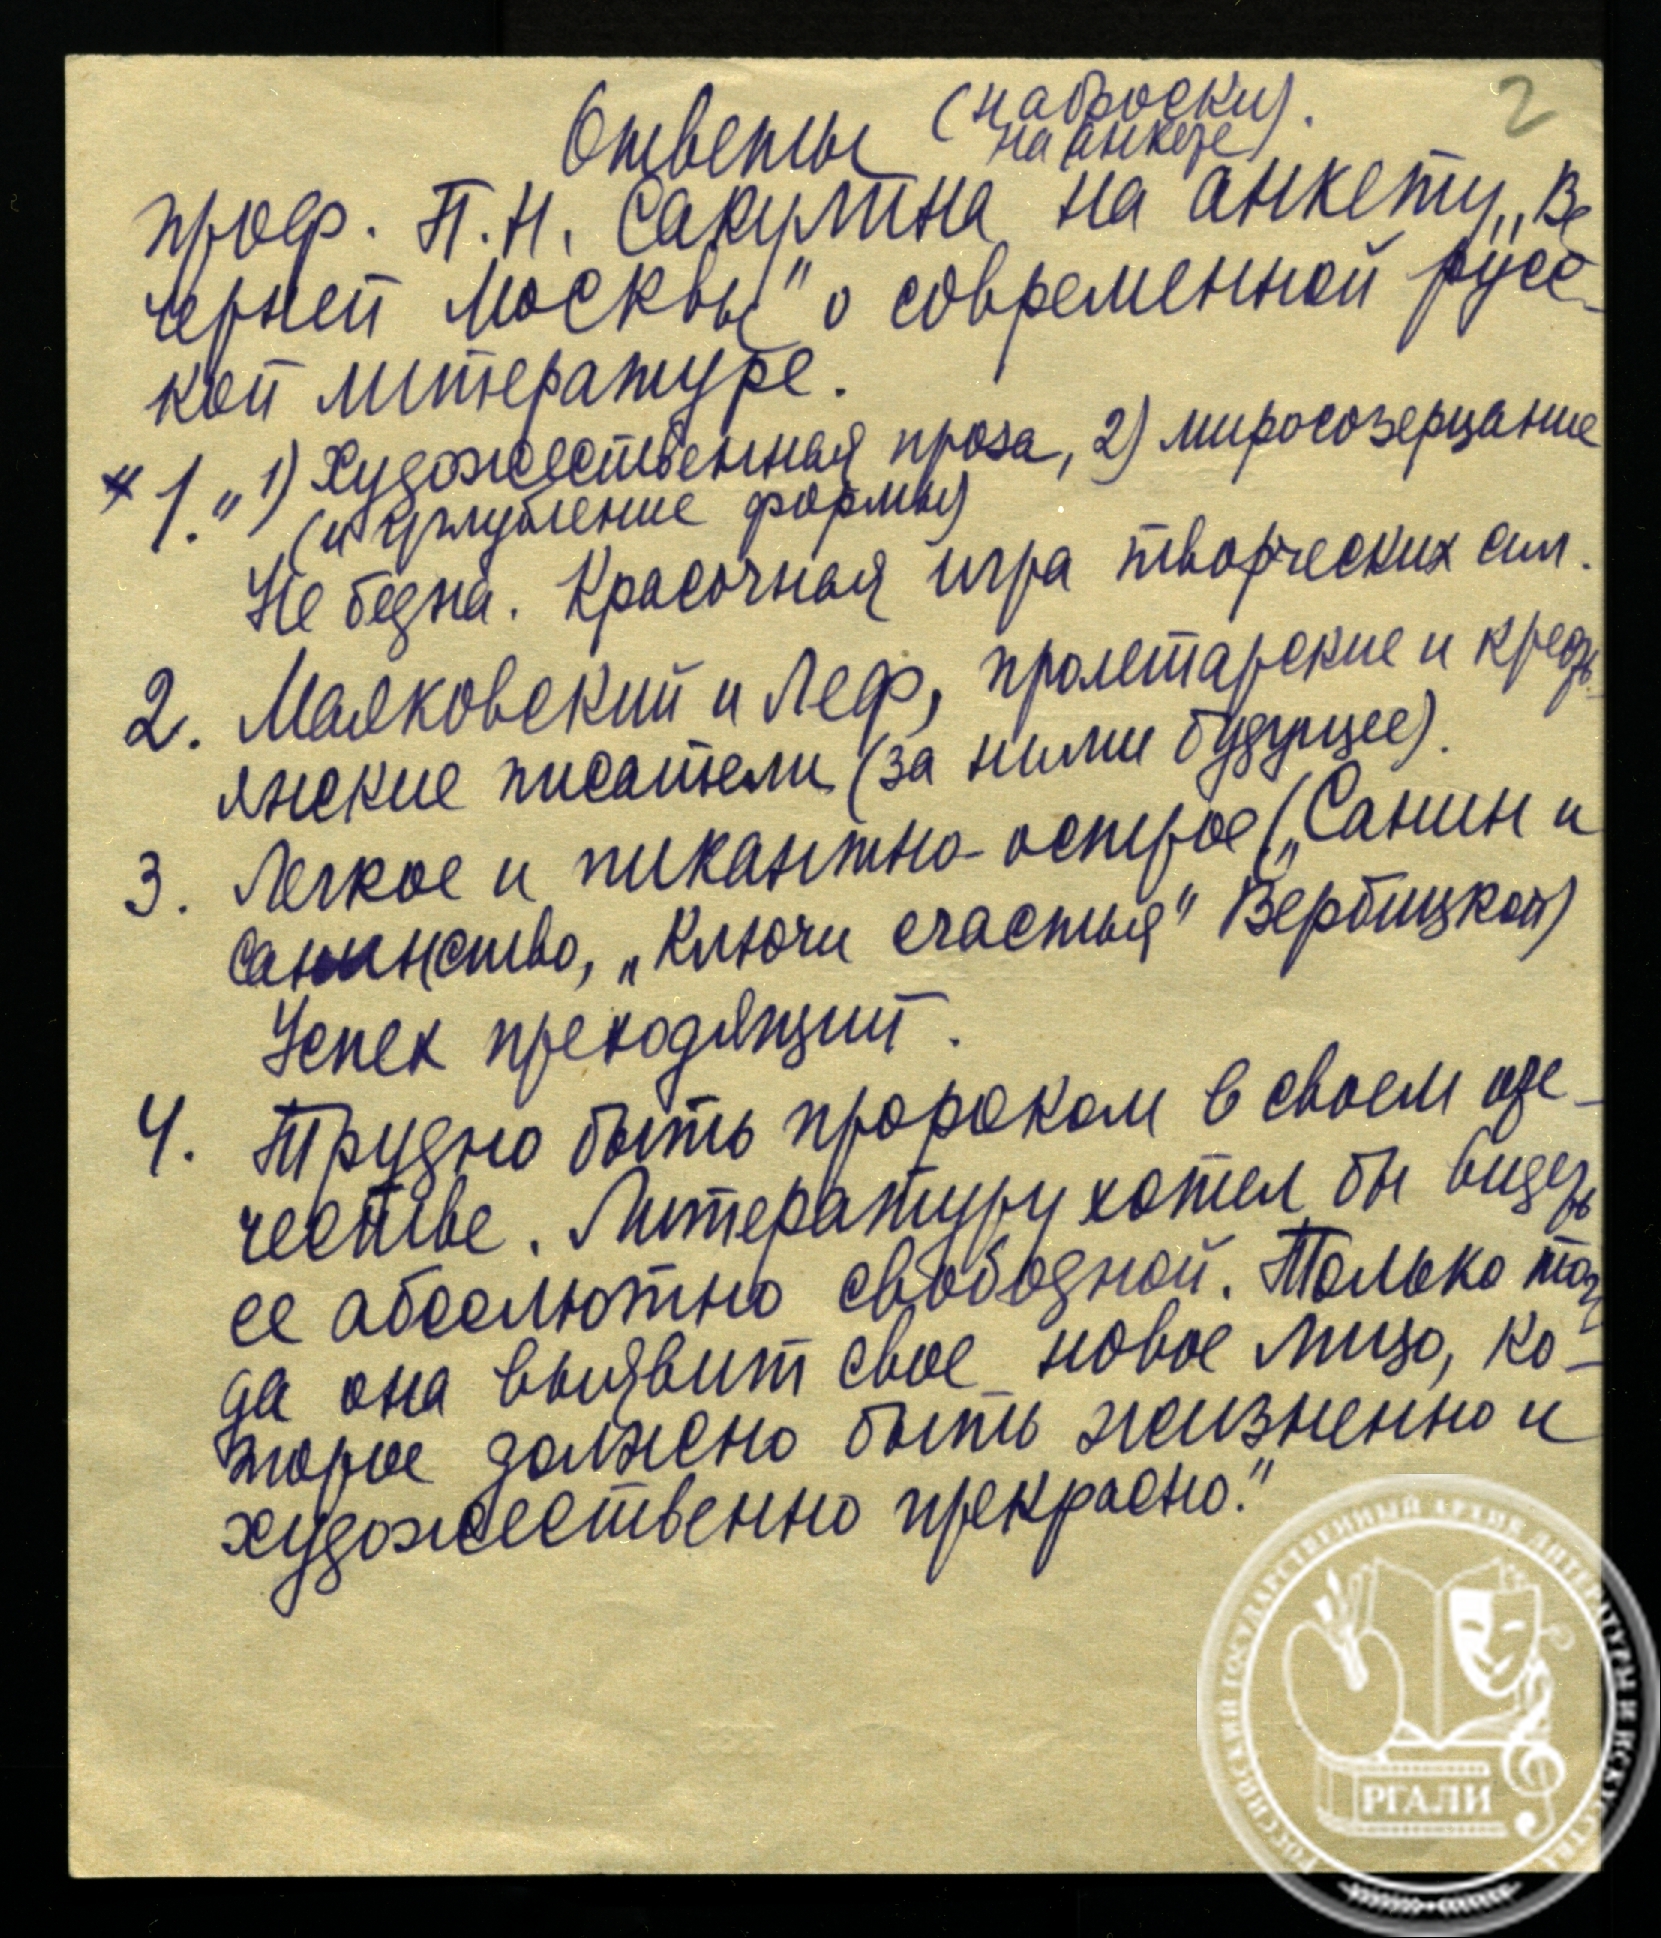 2
Ответы (наброски).
на анкете)
проф. П.Н. Сакулина на анкету „Ве
черней Москвы" о современной русс-
кой литературе.
* 1. „1) Художественная проза, 2) миросозерцание
(и углубление формы)
Не бедна. Красочная игра творческих сил.
2. Маяковский и Леф, пролетарские и кресть-
янские писатели (за ними будущее).
3. Легкое и пикантно-острое („Санин и
санинство, „Ключи счастья" Вербицкой)
Успех преходящий.
4. Трудно быть пророком в своем оте-
честве. Литературу хотел бы видеть
ее абсолютно свободной. Только тог
да она выявит свое новое лицо, ко-
торое должено быть жизненно и
художественно прекрасно."
РОССИЙСКИЙ ГОСУДАРСТВЕННЫЙ АРХИВ ЛИТЕРАТУРЫ И ИСКУССТВА
РГАЛИ